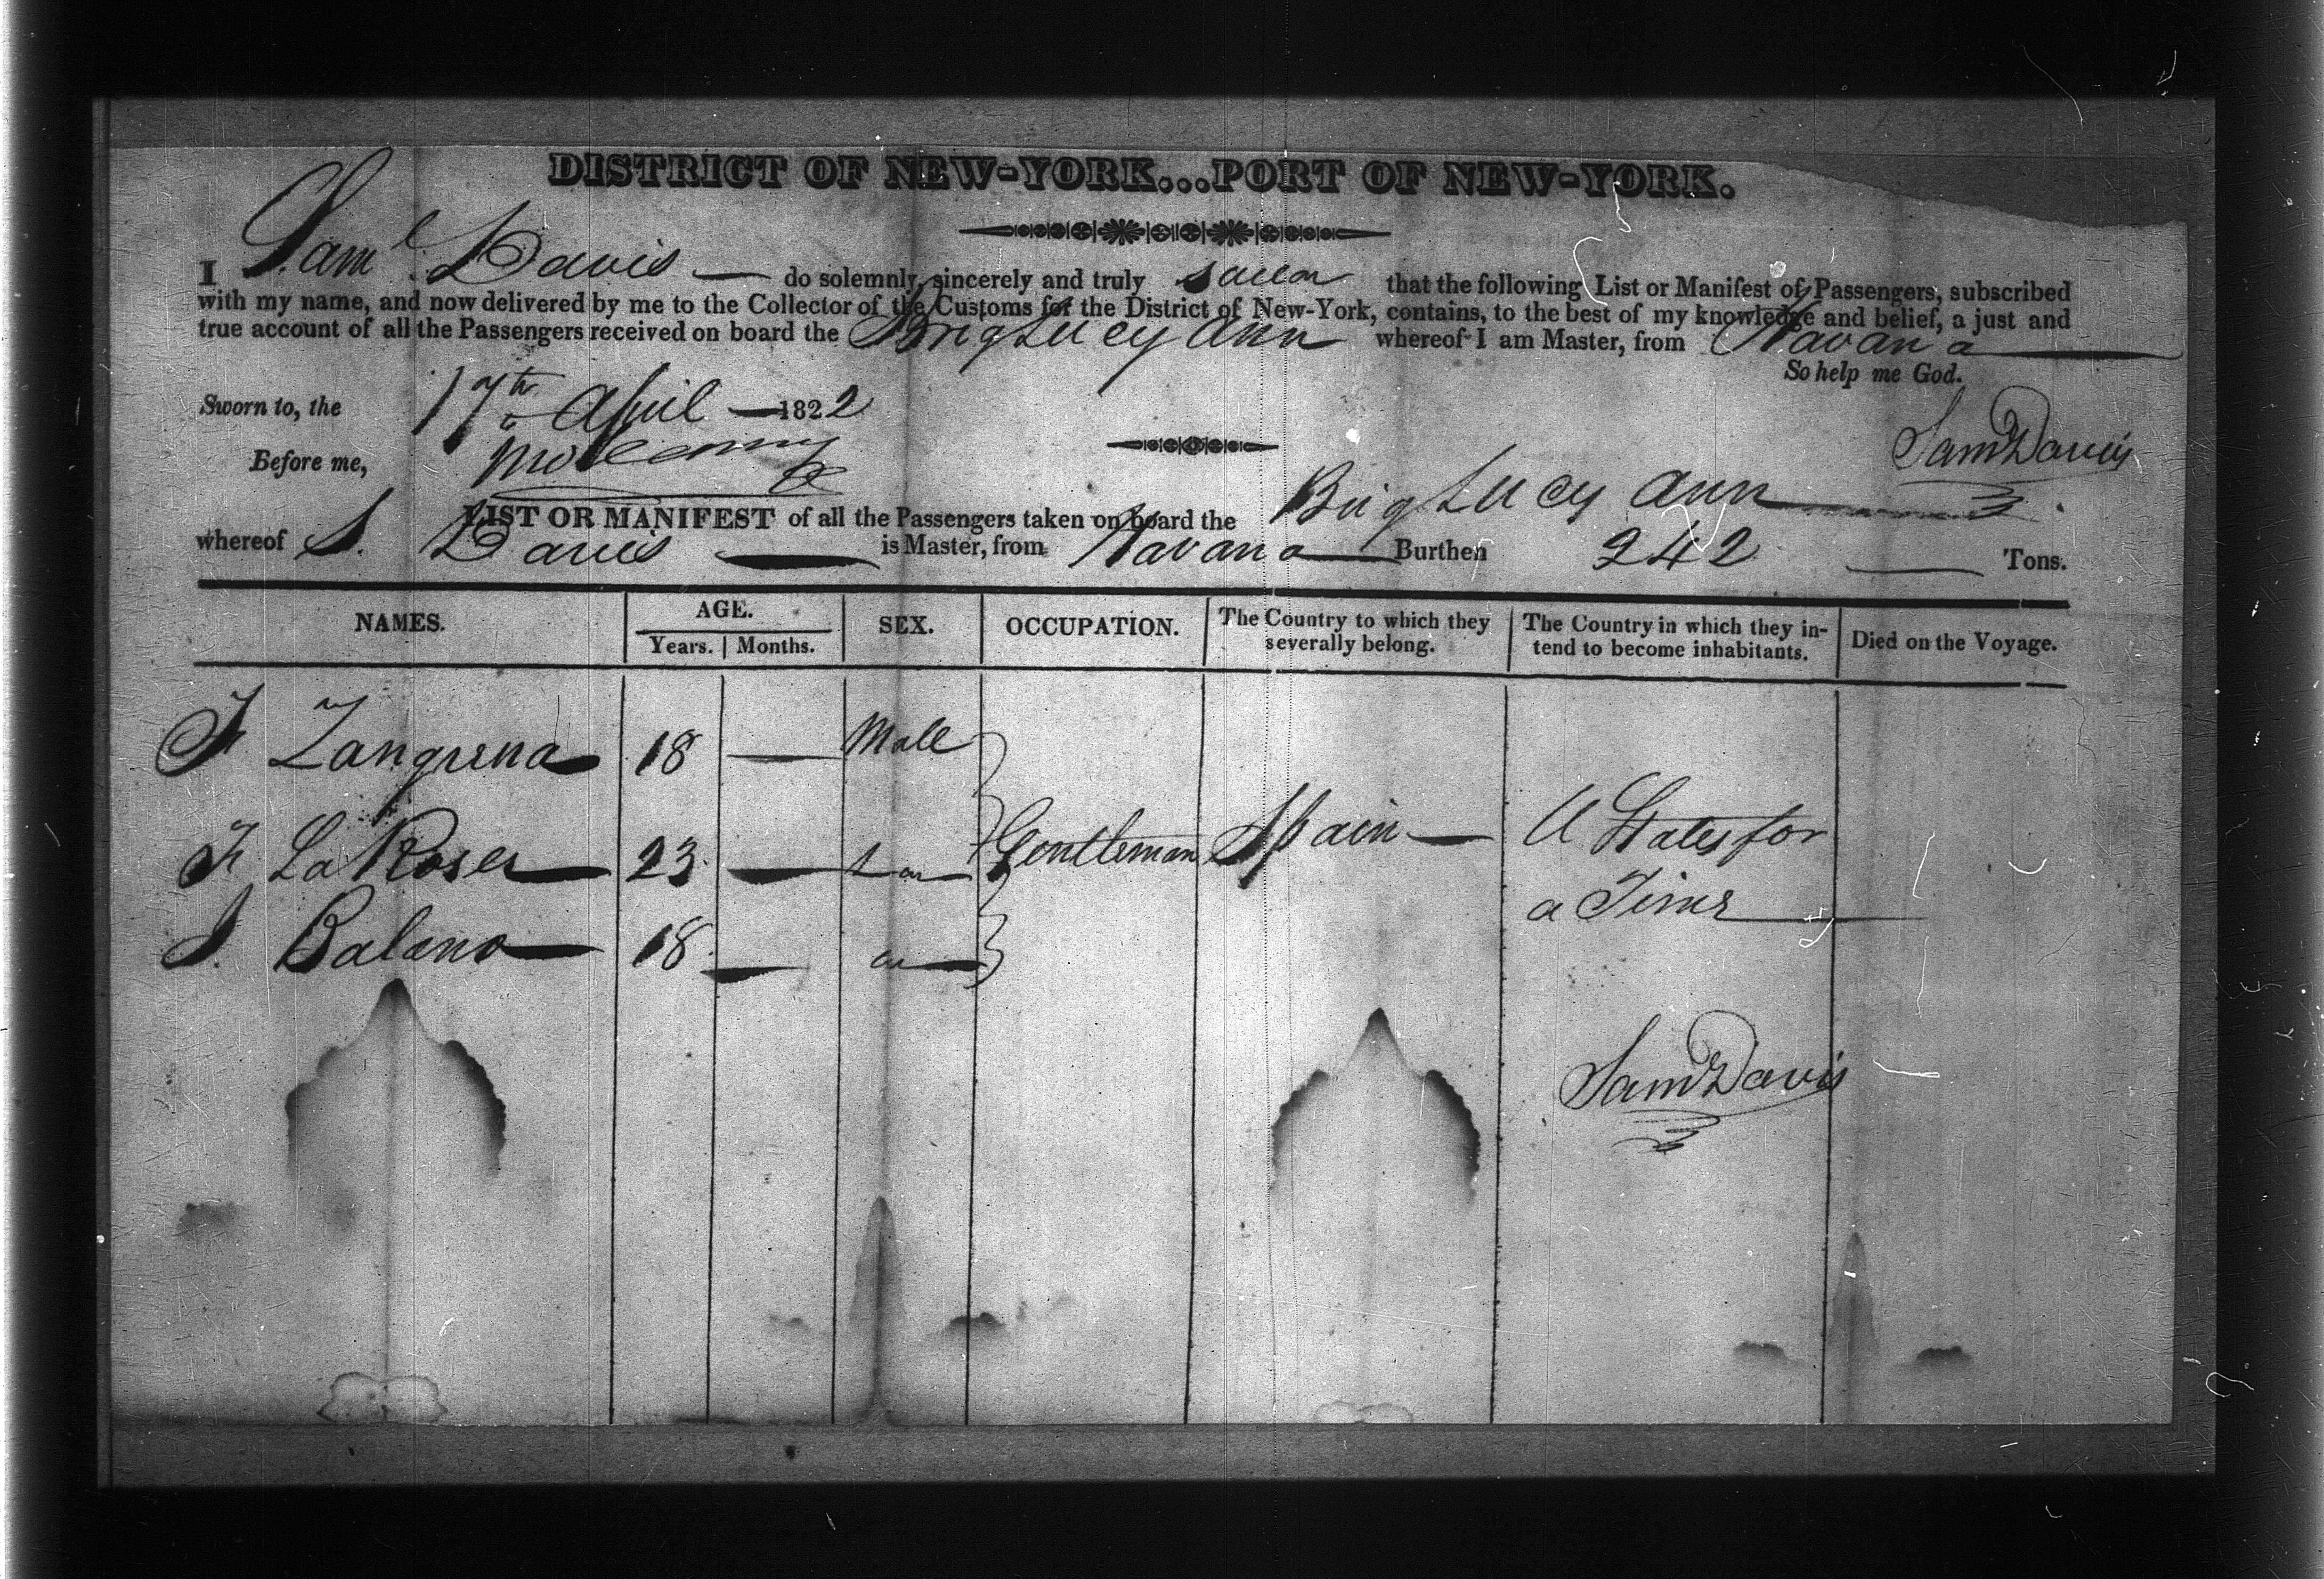 DISTRICT OF NEW-YORK...PORT OF NEW-YORK.
I Saml Davis do solemnly, sincerely and truly swear that the following List or Manifest of Passengers, subscribed
with my name, and now delivered by me to the Collector of the Customs for the District of New-York, contains, to the best of my knowledge and belief, a just and
true account of all the Passengers received on board the Brig Lucy Ann whereof I am Master, from Havana
So help me God.
Sworn to, the 17th April 1822
Sam Davis
Before me,
LIST OR MANIFEST of all the Passengers taken on board the Brig Lucy Ann
whereof S. Davis is Master, from Havana Burthen 242 Tons.
NAMES. AGE. Years. Months. SEX. OCCUPATION. The Country to which they severally belong. The Country in which they intend to become inhabitants. Died on the Voyage.
F 18 — Male
F LaRosea 23 — Gentleman Spain — U States for
a Time
18 —
Sam Davis